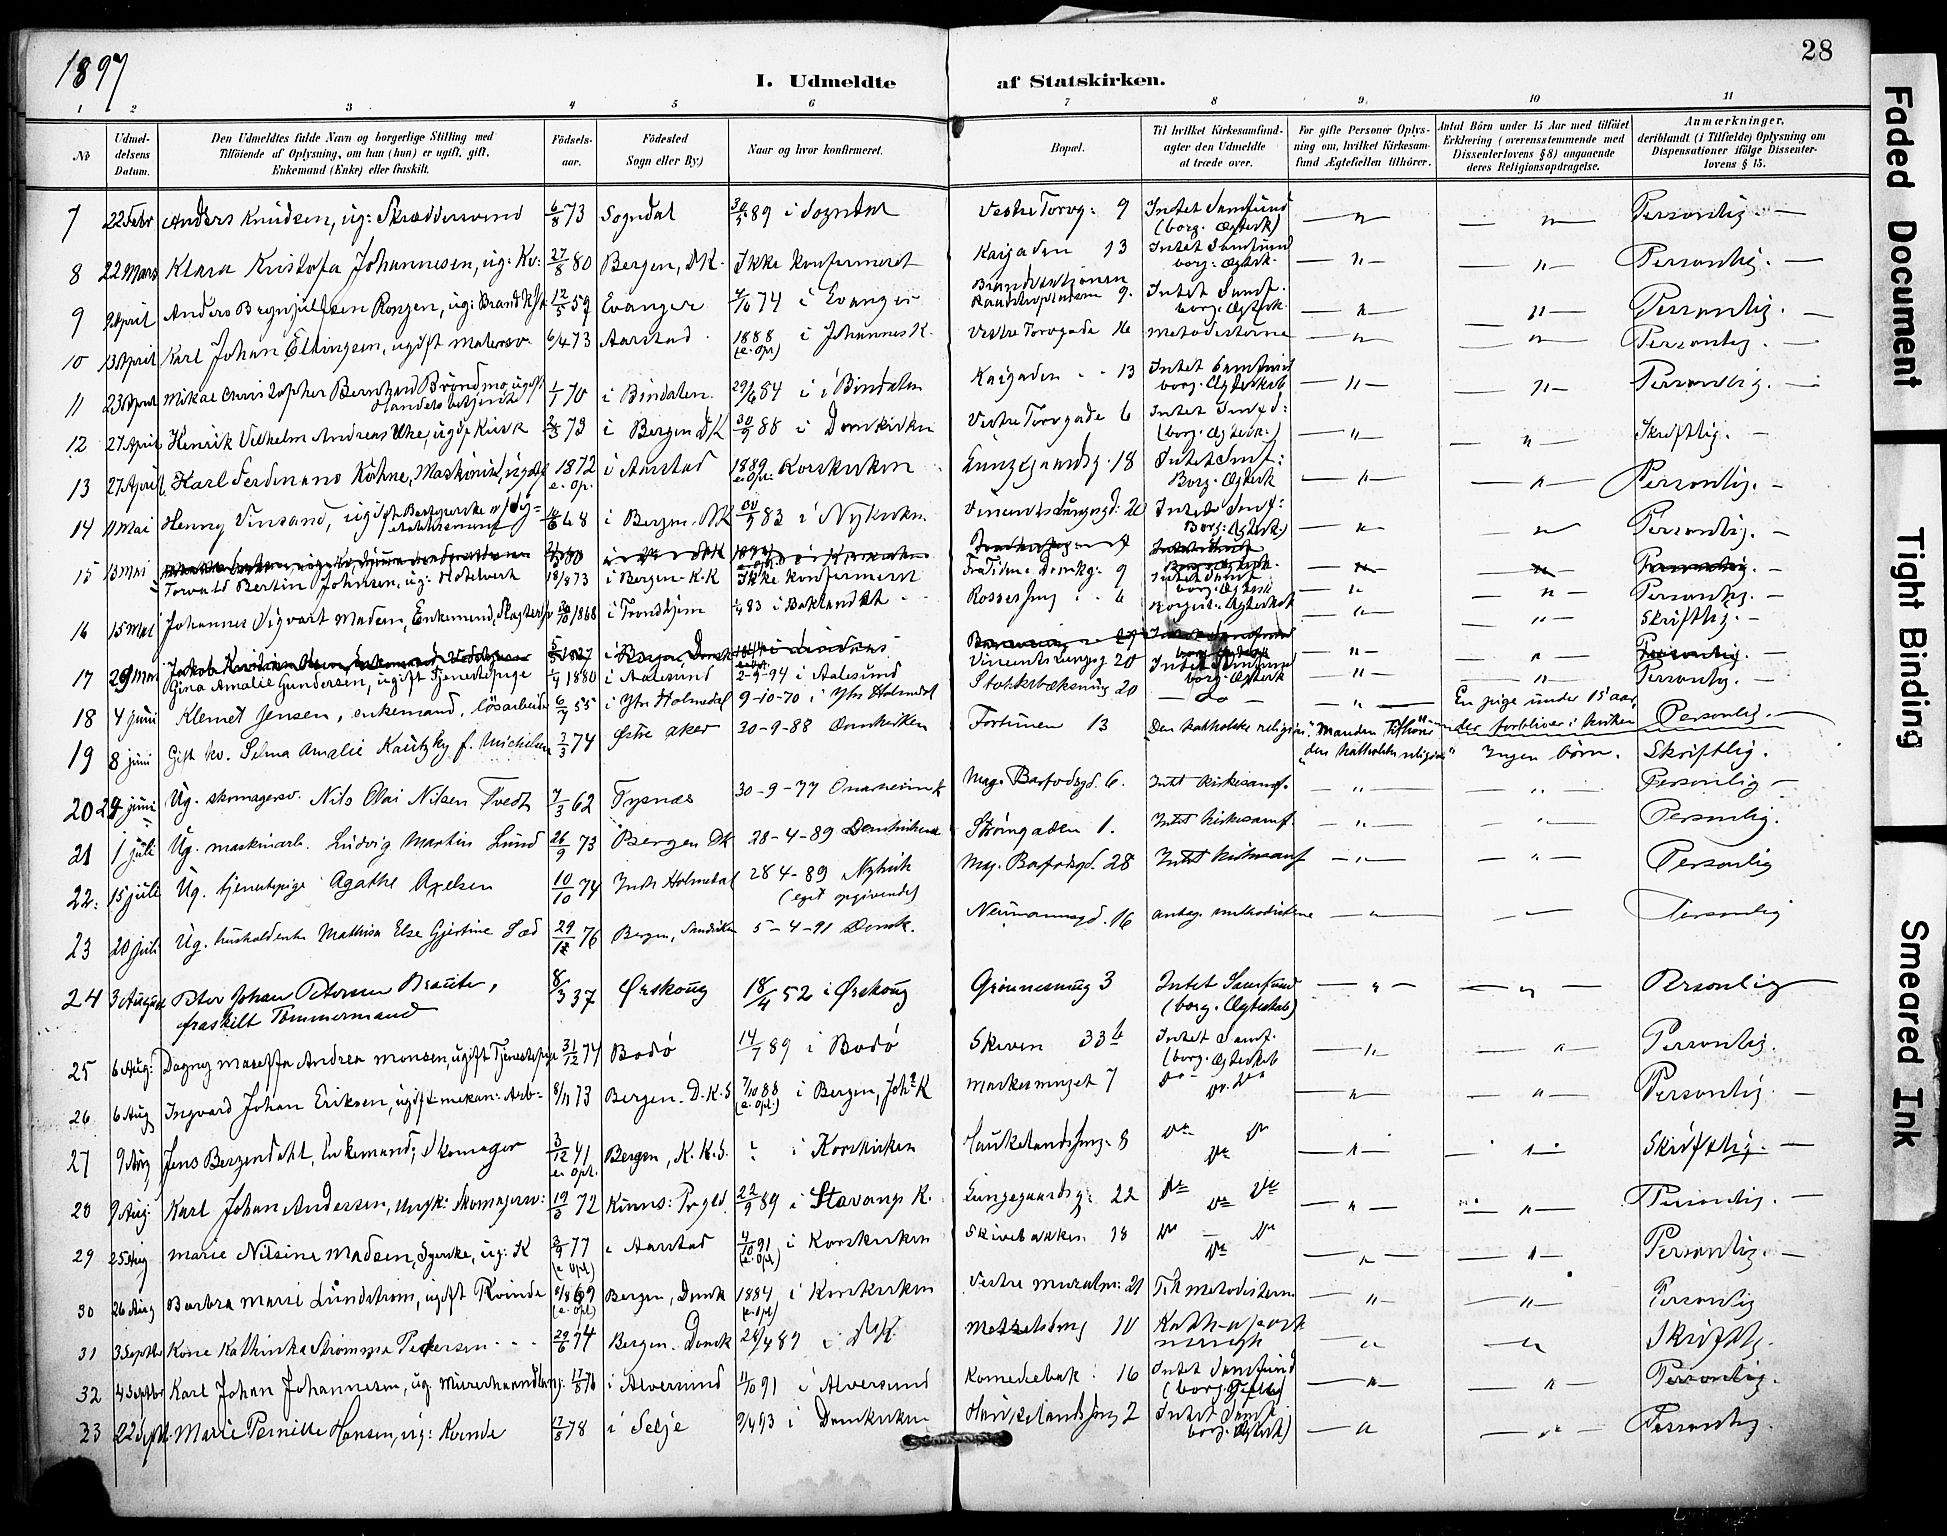 1897
28
I. Udmeldte af Statskirken.
1 2 3 4 5 6 7 8 9. 10 11
No
Udmeldelsens Datum.
Den Udmeldtes fulde Navn og borgerlige Stilling med Tilföiende af Oplysning, om han (hun) er ugift, gift, Enkemand (Enke) eller fraskilt.
Födselsaar.
Födested Sogn eller By)
Naar og hvor konfirmeret.
Bopæl.
Til hvilket Kirkesamfund agter den Udmeldte at træde over.
For gifte Personer Oplysning om, hvilket Kirkesamfund Ægtefællen tilhörer.
Antal Börn under 15 Aar med tilföiet Erklæring (overensstemmende med Dissenterlovens § 8) angaaende deres Religionsopdragelse.
Anmærkninger, deriblandt (i Tilfælde) Oplysning om Dispensationer ifölge Dissenterlovens § 15.
7 22 Febr Anders Knudsen, ug: Skræddersvend 6/8 73 Sogndal 30/5 89 i Sogndal Vestre Torvg: 9 Intet Samfund (borg. Ægtesk) — " — — " — Personlig. —
8 22 Mars Klara Kristofa Johannesen, ug: Kv: 27/8 80 Bergen, DK. Ikke konfirmeret Kaigaden 13 Intet Samfund borg: Ægtesk. — " — — " — Personlig. —
9 9 April Anders Brynjulfsen 12/5 59 Evanger 4/10 74 i Evanger Brandstationen 9. Intet Samf. borg: Ægtesk. — " — — " — Personlig. —
10 13 April Karl Johan Ellingsen, ugift malersv. 6/4 73 Aarstad 1888 (e. Opl) i Johannes K. Vestre Torvgade 16 metodisterne — " — — " — Personlig. —
11 23 April Mikal Christopher Bernhard Bröndmo, ugift Handelsbetjent 1/1 70 i Bindalen. 29/6 84 i Bindalen Kaigaden 13 Intet Samfund borg. Ægteskab — " — — " — Personlig. —
12 27 April Henrik Vilhelm Andreas Uhe, ugift Kusk 73 i Bergen DK 30/9 88 i Domkirken Vestre Torvgade 6 Intet Samfd: (borg. Ægtesk.) — " — — " — Skriftlig. —
13 27 April Karl Ferdinand Köhne, Maskinist, ugift 1872 e. Op. i Aarstad 1889 e. Opl. Korskirken Lungegaardsg. 18 Intet Samf: Borg. Ægtesk — " — — " — Personlig. —
14 11 Mai Henny Vinsand, ugift 68 i Bergen. NK 30/9 83 i Nykirken. 20 Intet Samf: Borg: Ægtesk.) — " — — " — Personlig. —
15 13 Mai Torvald Bertin Johnsen, ug: Hotelvert 18/8 73 i Bergen K.K Ikke konfirmeret Domkg: 9 Intet Samf borg. Ægtesk — " — — " — Personlig. —
16 15 Mai Johannes Sigvart Madsen, Enkemand, 1868 i Trondhjem 83 i Baklandet 4 Borgerl. Ægteskab — " — — " — Skriftlig. —
17 29 Mai Gina Amalie Gundersen, ugift Tjenestepige 1880 i Aalesund 2-9-94 i Aalesund 20 Intet Samfund borg. Ægtesk — " — — " — Personlig. —
18 4 juni Klemet Jensen, enkemand, lösarbeider 6/7 55 i Ytr Holmedal 9-10-70 i Ytr Holmedal 20 — do — — " — En pige under 15 aar, der forbliver i kirken Personlig. —
19 8 juni Gift kv. Selma Amalie Kautzky f. Michelsen 3/3 74 Östre Aker 30-9-88 Domkirken Fortunen 13 Den katholske religion. Manden tilhörer "den katholske religion" Ingen börn. Skriftlig.
20 29 juni Ug. skomagersv. Nils Olai Nilsen Tvedt 7/3 62 Tysnæs 30-9-77 Onarheim k Mag. Barfodsgd. 6. Intet kirkesamf. — " — — " — Personlig —
21 1 juli Ug. maskinarb. Ludvig Martin Lund 26/9 73 Bergen DK 28-4-89 Domkirken Strömgaden 1. Intet kirkesamf. — " — — " — Personlig.
22. 15 juli Ug. tjenestepige Agathe Axelsen 10/10 74 Indr Holmedal 28 4-89 Nykirk (eget opgivende) Mag. Barfodsgd. 28 Intet kirkesamf — " — — " — Personlig
23 20 juli Ug. husholderske Mathisa Else Gjertine Lœd 29/12 76 Bergen, Sandviken 5-4-91 Domk. Neumannsgd. 16 antag. methodisterne — " — — " — Personlig
24 3 August Peter Johan Petersen Brauter, fraskilt Tömmermand 8/3 37 Ørskoug 18/4 52 i Ørskoug Grönnesmug 3 Intet Samfund (borg. Ægteskab) — " — — " — Personlig
25 6 Aug: Dagny Maseffa Andrea Monsen, ugift Tjenestepige 31/12 74 Bodö 14/7 89 i Bodö Skiven 33 b Intet Samf. (borg. Ægteskab — " — — " — Personlig.
26 6 Aug Ingvard Johan Eriksen, ugift mekan: Arb- 8/11 73 Bergen. D.K.S 7/10 88 (e. Opl.) i Bergen, Johs K Markesmuget 7 Do Do. Do — " — — " — Personlig. —
27 9 Aug Jens Bergendahl, Enkemand, Skomager 3/12 41 e. Opl. Bergen, K.K.S. i Korskirken Haukelandssmg. 8 Do Do Do — " — — " — Skriftlig. —
28 9 Aug: Karl Johan Andersen, Ungk: Skomagersv: 19/3 72 Kinns: Prgld. 22/9 89 i Stavang K. Lungegaardsg: 22 Do Do Do — " — — " — Personlig. —
29 25 Aug Marie Nilsine Madsen, Syerske, ug: K 77 (e Opl) i Aarstad 4/10 91 (e. Opl) i Korskirken Skivebakken 18 Do — Do Do — " — — " — Personlig. —
30 26 Aug Barbra Marie Lundström, ugift Kvinde 69 (e. Opl) Bergen, Domk 1884 (e. Opl) i Korskirken Vestre Muralm: 21 Til metodisterne — " — — " — Personlig
31 3 Septbr Kone Kathinka Strömme Pedersen 29/6 74 Bergen. Domk 28/4 89 i NK 10 — " — — " — Skriftlg.
32 4 Septbr Karl Johan Johannesen, ug. Murerhaandlang: 17/8 76 i Alversund 11/10 91 i Alversund Komediebak: 16 Intet Samfund — " — — " — Personlig.
33 22 Septb. Marie Pernille Hansen, ug: Kvinde 17/8 78 i Selje 9/4 93 i Domkirken Haukelandssmg 2 Intet Samf borg. Ægtesk) — " — — " — Personlig.
Faded Document
Tight Binding
Smeared Ink